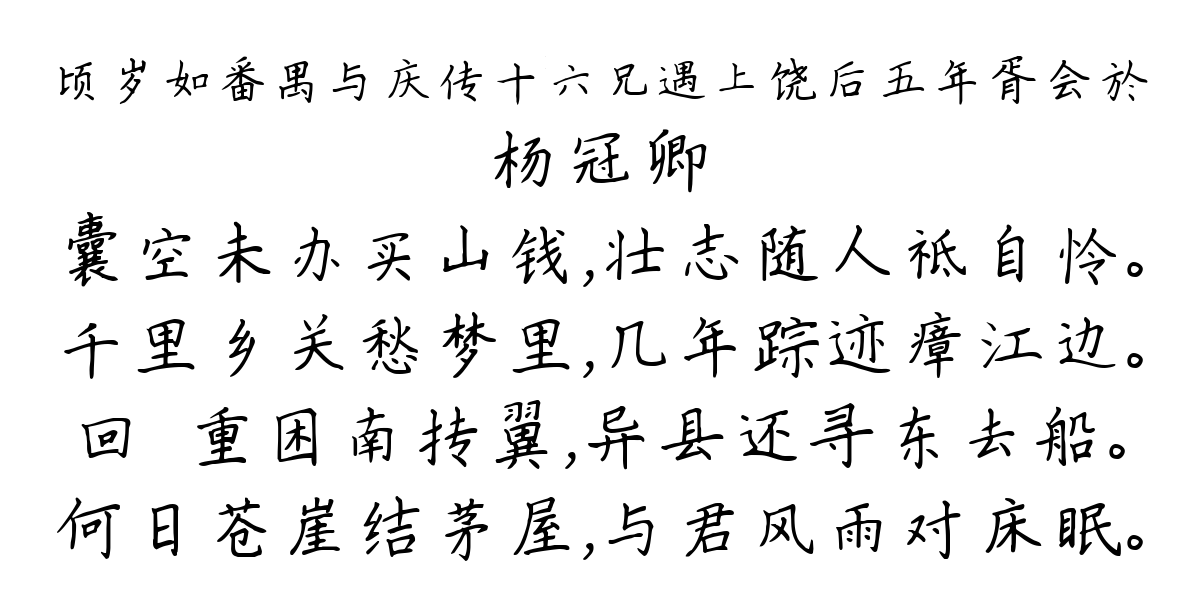 顷岁如番禺与庆传十六兄遇上饶后五年胥会於
杨冠卿
囊空未办买山钱,壮志随人祗自怜。
千里乡关愁梦里,几年踪迹瘴江边。
回 重困南抟翼,异县还寻东去船。
何日苍崖结茅屋,与君风雨对床眠。